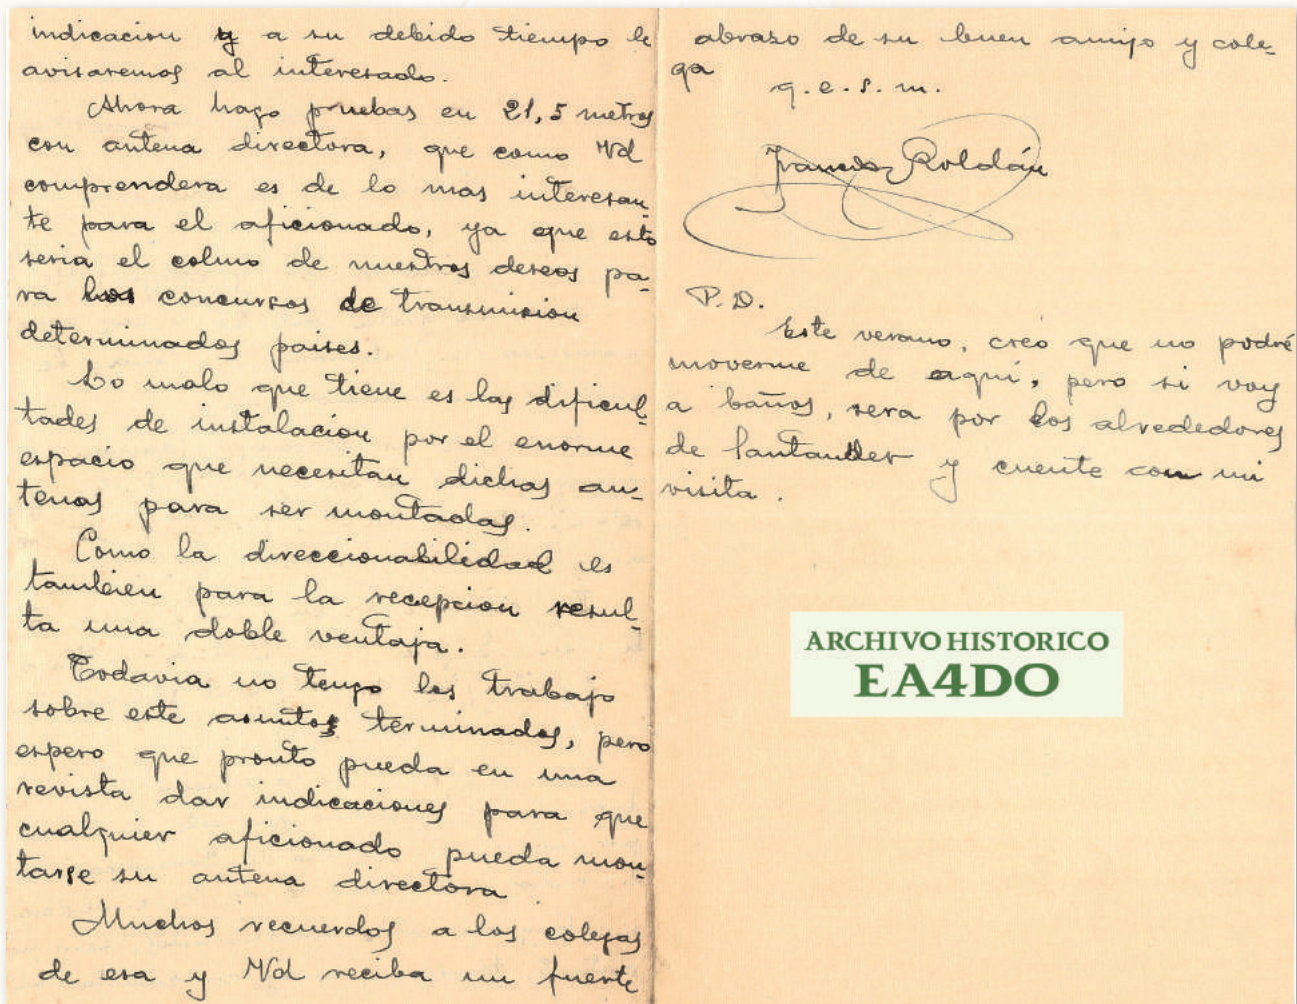 indicacion y a su debido tiempo le
avisaremos al interesado.
Ahora hago pruebas en 21,5 metros
con antena directora, que como Vd
comprendera es de lo mas interesan-
te para el aficionado, ya que esto
seria el colmo de nuestros deseos pa-
ra los concursos de transmision
determinados paises.
Lo malo que tiene es las dificul-
tades de instalacion por el enorme
espacio que necesitan dichas an-
tenas para ser montadas.
Como la direccionabilidad es
tambien para la recepcion resul-
ta una doble ventaja.
Todavia no tengo los trabajo
sobre este asuntos terminados, pero
espero que pronto pueda en una
revista dar indicaciones para que
cualquier aficionado pueda mon-
tarse su antena directora
Muchos recuerdos a los colegas
de esa y Vd reciba un fuerte
abrazo de su buen amigo y cole-
ga
q.e.s.m.
Francisco Roldán
P.D.
Este verano, creo que no podré
moverme de aqui, pero si voy
a baños, sera por los alrededores
de Santander y cuente con mi
visita.
ARCHIVO HISTORICO
EA4DO